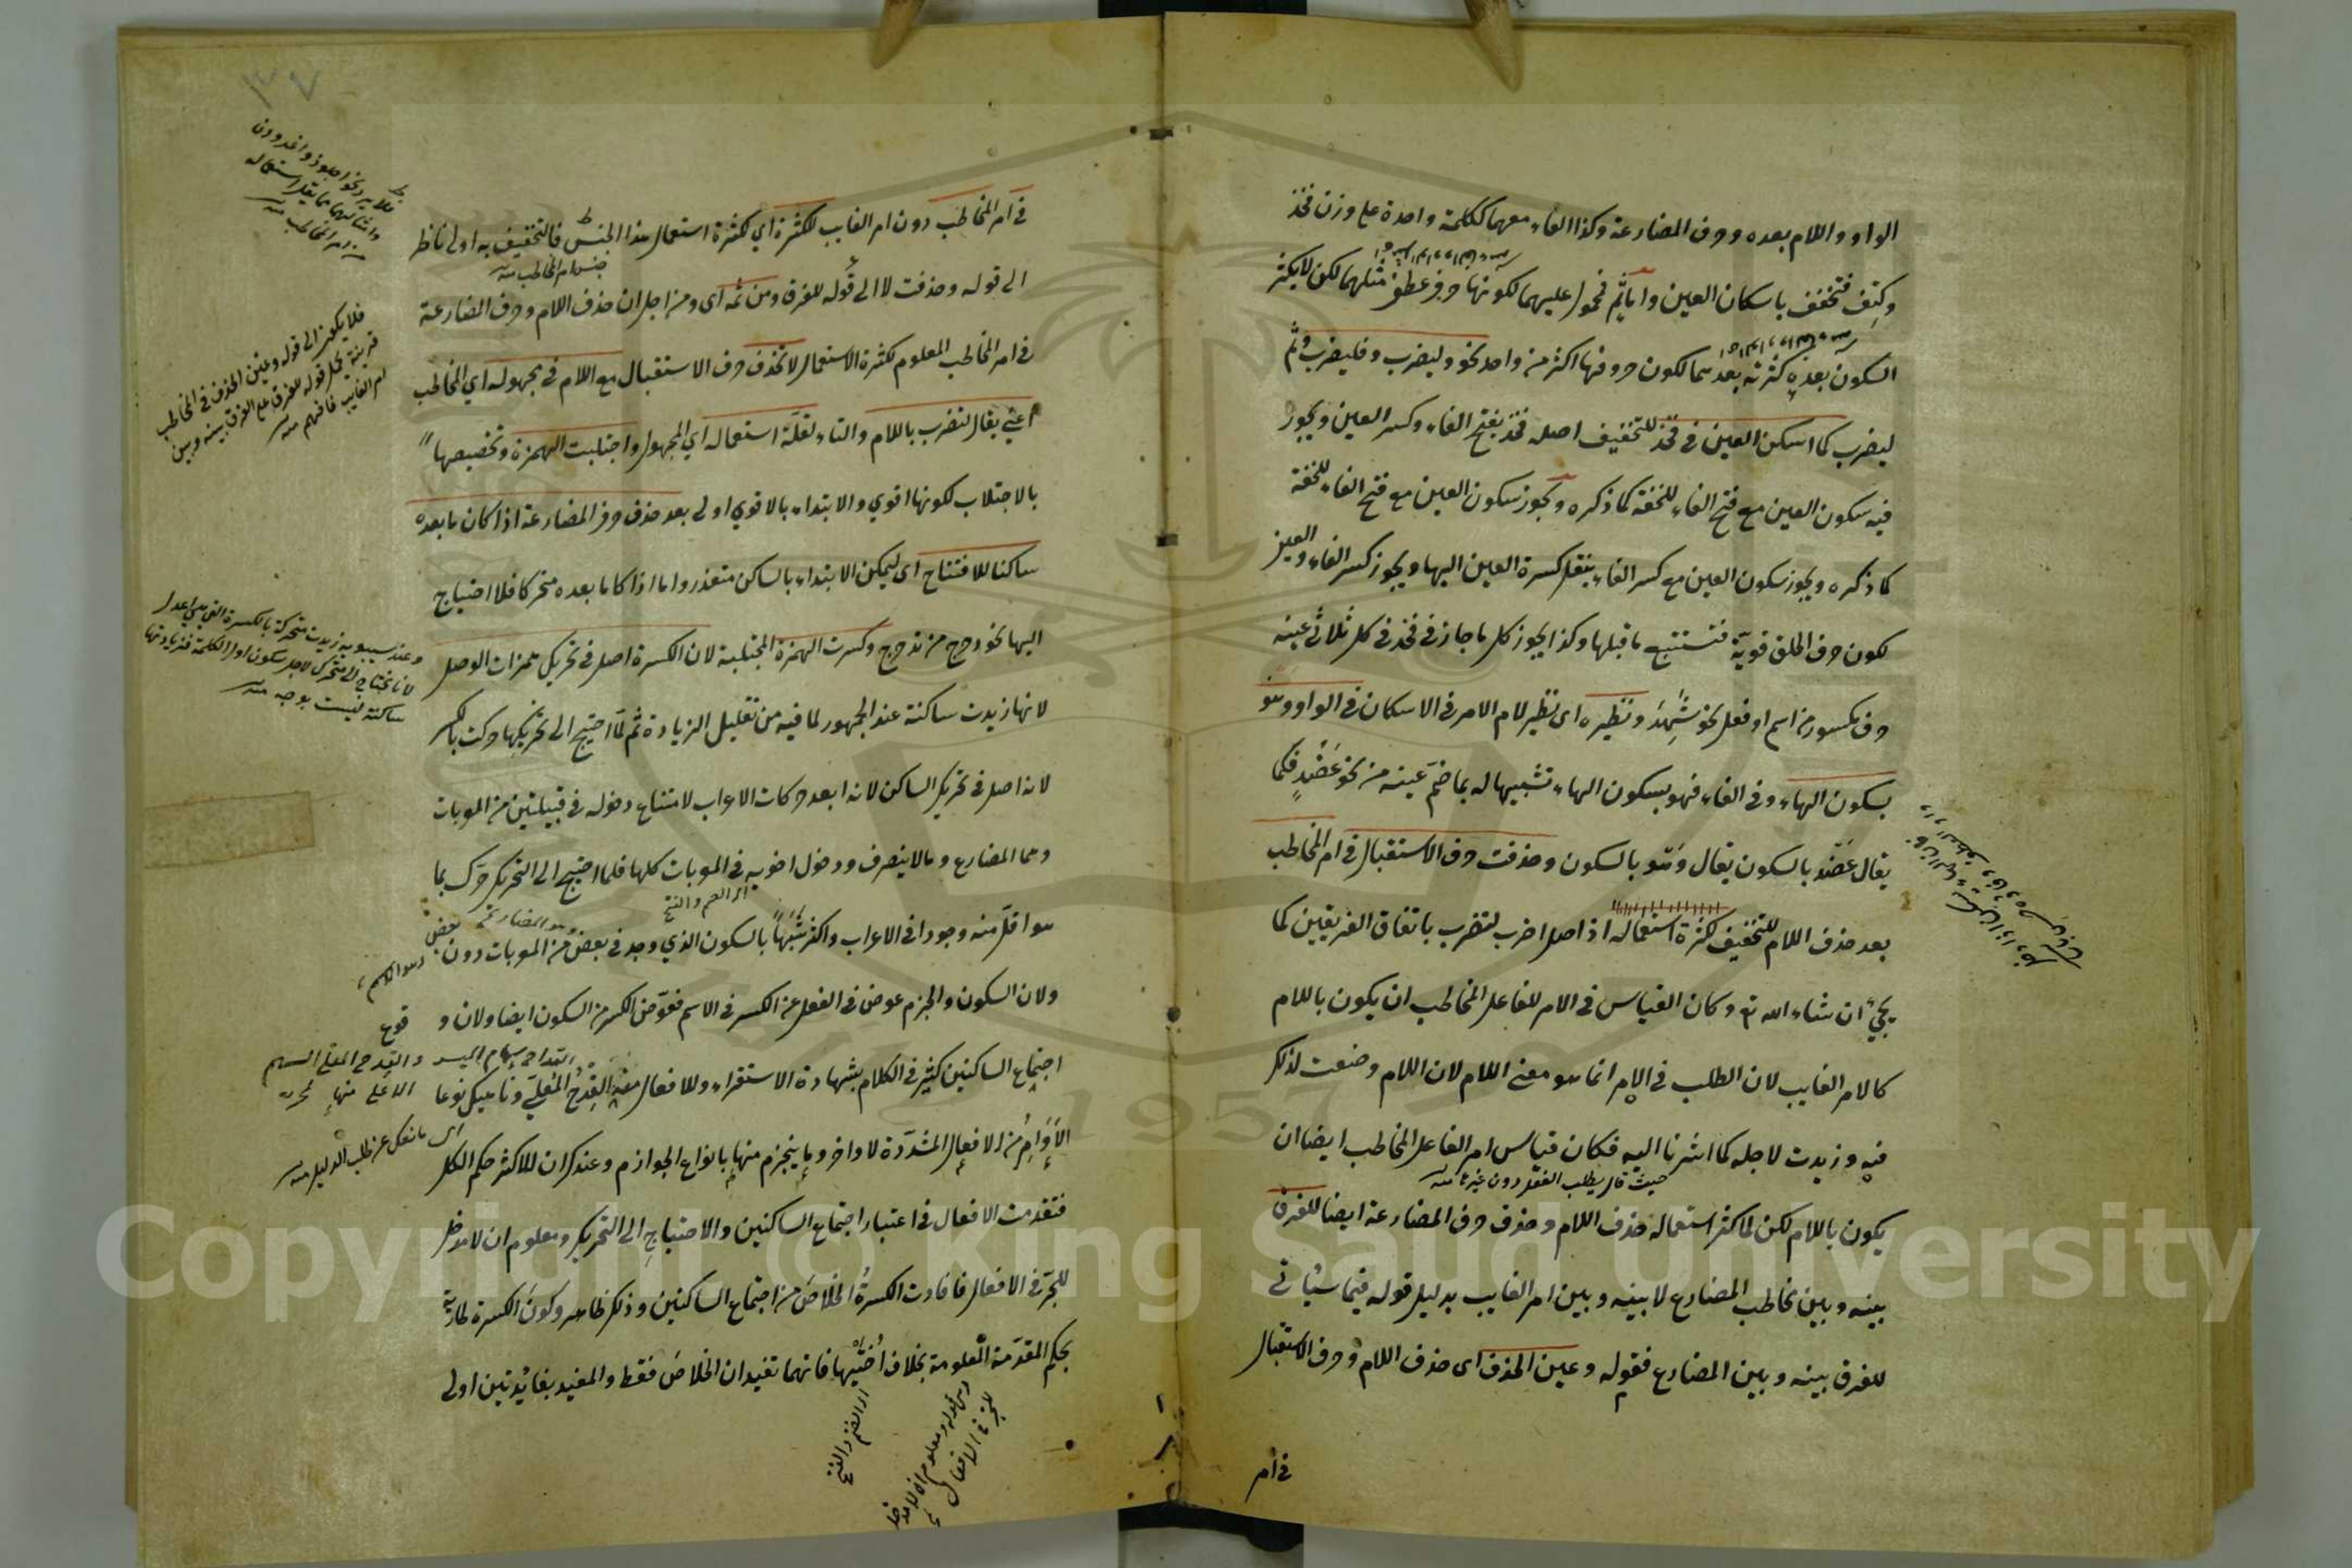 الواو واللام بعده وحرف المضارعة وكذا الفاء معهما ككلمة واحدة على وزن فخذ
وكتف فتخفف باسكان العين واما ثم فمحمول عليهما لكونها حرف عطف مثلهما لكن لا يكثر
السكون بعده كثرته بعدهما لكون حروفها اكثر من واحد نحو وليضرب وفليضرب وثم
ليضرب كما اسكن العين في فخذ للتخفيف اصله فخذ بفتح الفاء وكسر العين ويجوز
فيه سكون العين مع فتح الفاء للخفة كما ذكره ويجوز سكون العين مع فتح الفاء للخفة
كما ذكره ويجوز سكون العين مع كسر الفاء بنقل كسرة العين اليها ويجوز كسر الفاء والعين
لكون حرف الحلق قوية فتستتبع ما قبلها وكذا يجوز كل ما جاز في فخذ في كل ثلاثي عينه
حرف مكسور من اسم او فعل نحو شهد ونظيره اى نظير لام الامر في الاسكان في الواو وهو
بسكون الهاء وفي الفاء فهو بسكون الهاء تشبيها له بما ضم عينه من نحو عضد فكما
يقال عضد بالسكون يقال وهو بالسكون وحذفت حرف الاستقبال في امر المخاطب
بعد حذف اللام للتخفيف كثرة استعماله اذ اصل اضرب لتضرب باتفاق الفريقين كما
يجيء ان شاء الله تع وكان القياس في الامر للفاعل المخاطب ان يكون باللام
كالامر الغايب لان الطلب في الامر انما هو معنى اللام لان اللام وضعت لذلك
فيه وزيدت لاجله كما اشرنا اليه فكان قياس امر الفاعل المخاطب ايضا ان
حيث قال يطلب الفعل دون غيره منه
يكون باللام لكن لما كثر استعماله حذف اللام وحذف حرف المضارعة ايضا للفرق
بينه وبين مخاطب المضارع لا بينه وبين امر الغايب بدليل قوله فيما سيأتي
للفرق بينه وبين المضارع فقوله وعين الحذف اى حذف اللام وحرف الاستقبال
في امر
٣٧
في امر المخاطب دون امر الغايب لكثرة اي لكثرة استعمال هذا الجنس فالتخفيف به اولى ناظر
جنس امر المخاطب منه
الى قوله وحذفت لا الى قوله للفرق ومن ثمه اى ومن اجل ان حذف اللام وحرف المضارعة
في امر المخاطب المعلوم لكثرة الاستعمال لا تحذف حرف الاستقبال مع اللام في مجهوله اي المخاطب
اعني يقال لتضرب باللام والتاء لقلة استعماله اي المجهول واجتلبت الهمزة وتخصيصها
بالاجتلاب لكونها اقوي والابتداء بالاقوي اولى بعد حذف حرف المضارعة اذا كان ما بعده
ساكنا للافتتاح اى ليمكن الابتداء بالساكن متعذر واما اذا كا ما بعده متحركا فلا احتياج
اليها نحو دحرج من تدحرج وكسرت الهمزة المجتلبة لان الكسرة اصل في تحريك همزات الوصل
لانها زيدت ساكنة عند الجمهور لما فيه من تقليل الزيادة ثم لما احتيج الى تحريكها حركت بالكسر
لانه اصل في تحريك الساكن لانه ابعد حركات الاعراب لامتناع دخوله في قبيلتين من المعربات
وهما المضارع وما لا ينصرف ودخول اخويه في المعربات كلها فلما احتيج الى التحريك حرك بما
اى الضم والفتح
هو اقل منه وجودا في الاعراب واكثر شبها بالسكون الذي وجد في بعض من المعربات دون بعض
وهو المضارع
وهو الاسم
ولان السكون والجزم عوض في الفعل عن الكسر في الاسم فعوض الكسر من السكون ايضا ولان وقوع
اجتماع الساكنين كثير في الكلام بشهادة الاستقراء وللافعال منه القدح المعلى وناهيك نوعا
القداح سهام الميسر والقدح المعلى السهم
الاعلى منها
الاوامر من الافعال المشددة لاواخر وما ينجزم منها بانواع الجوازم وعندك ان للاكثر حكم الكل
اى ما نعك عن طلب الدليل منه
فتقدمت الافعال في اعتبار اجتماع الساكنين والاحتياج الى التحريك ومعلوم ان لا مدخل
للجر في الافعال فافادت الكسرة الخلاص من اجتماع الساكنين وذلك ظاهر وكون الكسرة طارية
بحكم المقدمة المعلومة بخلاف اختيها فانهما تفيدان الخلاص فقط والمفيد بفائدتين اولى
اى الضم والفتح
وهى قوله ومعلوم ان لا مدخل
للجر في الافعال
فلا يرد نحو اجلوذ واغدودن
وامثالهما مما يقل استعماله
من امر المخاطب منه
فلا يكون الى قوله وعين الحذف في المخاطب
قرينة على قوله للفرق على الفرق بينه وبين
امر الغايب فافهم منه
وعند سيبويه زيدت متحركة بالكسرة التي هي اعدل
لانا نحتاج الى متحرك لاجل سكون اول الكلمة فزيادتها
ساكنة ليست بوجه منه
Copyright © King Saud University
1957